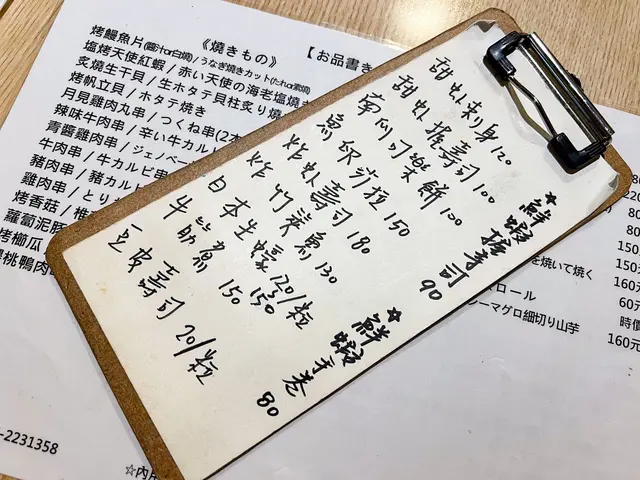 《燒きもの》
【お品書き
烤鰻魚片(醬汁or白燒)/うなぎ焼きカット(たれor素焼
塩烤天使紅蝦/赤い天使の海老塩焼き
炙燒生干貝/生ホタテ貝柱炙り焼
烤帆立貝/ホタテ焼き
月見雞肉丸串/つくね串(2本
辣味牛肉串/辛い牛カルビ
青醬雞肉串/ジェノベーゼ
牛肉串/牛カルビ串
豬肉串/豬カルビ
雞肉串/とり
烤香菇/椎
蘿蔔泥豚
烤櫛瓜
櫻桃鴨肉
-2231358
☆內用
甜虾刺身 120
甜虾握寿司 100
南瓜可樂餅 100
魚卵沙拉 150
炸虾壽司 180
炸竹筴魚 130
日本生蠔 120/粒
150
牛筋煮 150
豆皮壽司 20/粒
☆鮮蝦握壽司 90
☆鮮蝦手卷 80
を焼いて焼く
ロール
ーマグロ細切り山芋
150元
160元
60元
時價
160元